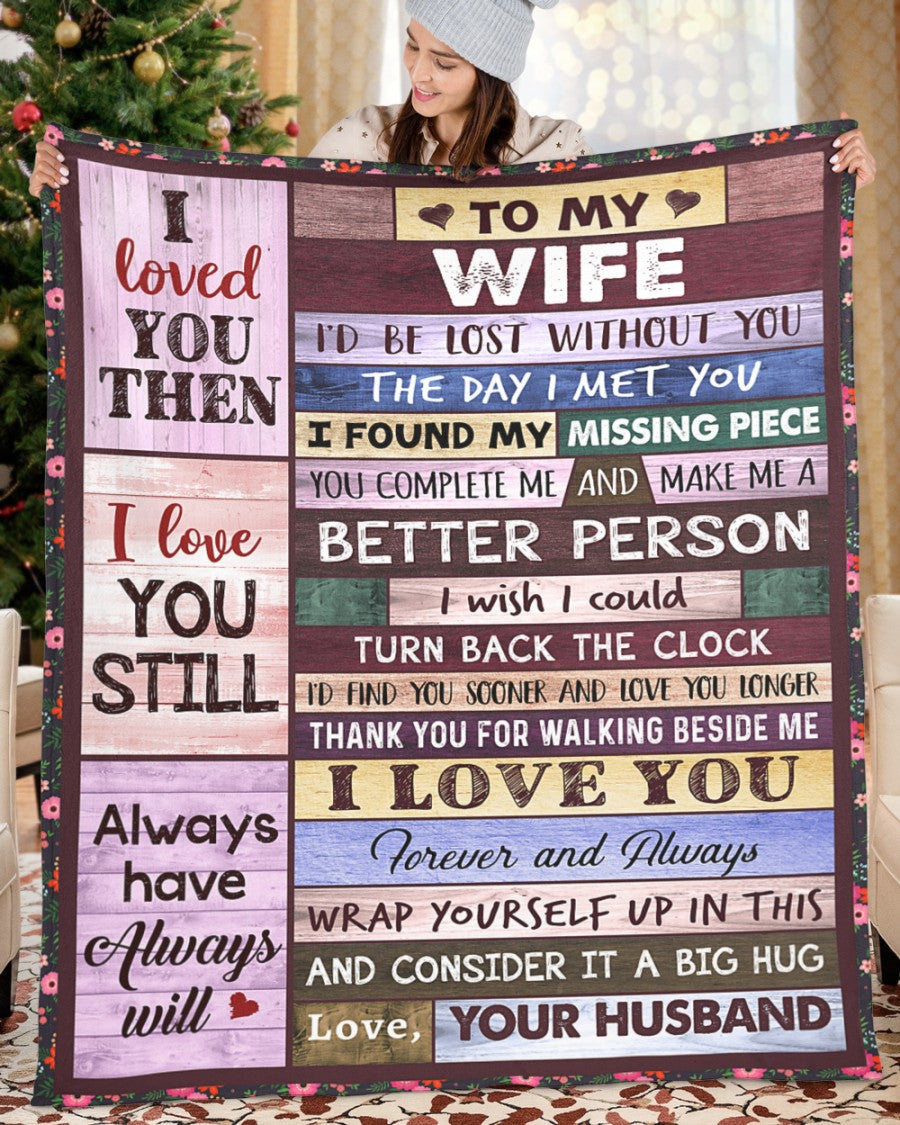 I
loved
YOU
THEN
I love
YOU
STILL
Always
have
Always
will
TO MY
WIFE
I'D BE LOST WITHOUT YOU
THE DAY I MET YOU
I FOUND MY MISSING PIECE
YOU COMPLETE ME AND MAKE ME A
BETTER PERSON
I wish I could
TURN BACK THE CLOCK
I'D FIND YOU SOONER AND LOVE YOU LONGER
THANK YOU FOR WALKING BESIDE ME
I LOVE YOU
Forever and Always
WRAP YOURSELF UP IN THIS
AND CONSIDER IT A BIG HUG
Love, YOUR HUSBAND